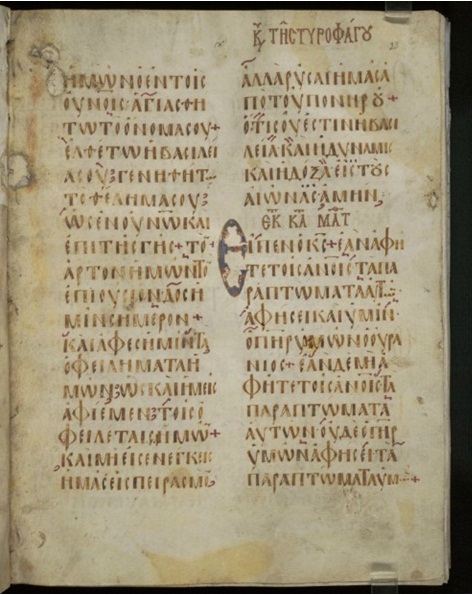 Κ̅Υ ΤΗϹ ΤΥΡΟΦΑΓΟΥ
ΗΜΩΝΟΕΝΤΟΙϹ
ΟΥΝΟΙϹ·ΑΓΙΑϹΘΗ
ΤΩΤΟΟΝΟΜΑϹΟΥ+
ΕΛΘΕΤΩΗΒΑϹΙΛΕΙ
ΑϹΟΥ·ΓΕΝΗΘΗΤ
ΤΟΘΕΛΗΜΑϹΟΥ
ΩϹΕΝΟΥΝΩΚΑΙ
ΕΠΙΤΗϹΓΗϹ+ΤΟ
ΑΡΤΟΝΗΜΩΝΤΟ
ΕΠΙΟΥϹΙΟΝΔΟϹΗ
ΜΕΙΝϹΗΜΕΡΟΝ+
ΚΑΙΑΦΕϹΗΜΙΝΤΑ
ΟΦΕΙΛΗΜΑΤΑΗ
ΜΩΝ·ΩϹΚΑΙΗΜΕΙϹ
ΑΦΙΕΜΕΝΤΟΙϹΟ
ΦΕΙΛΕΤΑΙϹΗΜΩ+
ΚΑΙΜΗΕΙϹΕΝΕΓΚΕΙϹ
ΗΜΑϹΕΙϹΠΕΙΡΑϹΜΟ
ΑΛΛΑΡΥϹΑΙΗΜΑϹΑ
ΠΟΤΟΥΠΟΝΗΡΟΥ+
ΟΤΙϹΟΥΕϹΤΙΝΗΒΑϹΙ
ΛΕΙΑΚΑΙΗΔΥΝΑΜΙϹ
ΚΑΙΗΔΟΞΑΕΙϹΤΟΥϹ
ΑΙΩΝΑϹΑΜΗΝ
ΕΚ ΚΑ ΜΑΤ
ΕΙΠΕΝΟΚ̅Ϲ+ΕΑΝΑΦΗ
ΤΕΤΟΙϹΑΝΟΙϹΤΑΠΑ
ΡΑΠΤΩΜΑΤΑΑΥΤ
ΑΦΗϹΕΙΚΑΙΥΜΙΝ
ΟΠΗΡΥΜΩΝΟΟΥΡΑ
ΝΙΟϹ+ΕΑΝΔΕΜΗΑ
ΦΗΤΕΤΟΙϹΑΝΟΙϹΤΑ
ΠΑΡΑΠΤΩΜΑΤΑ
ΑΥΤΩΝ·ΟΥΔΕΟΠΗΡ
ΥΜΩΝΑΦΗϹΕΙΤΑ
ΠΑΡΑΠΤΩΜΑΤΑΥΜ+